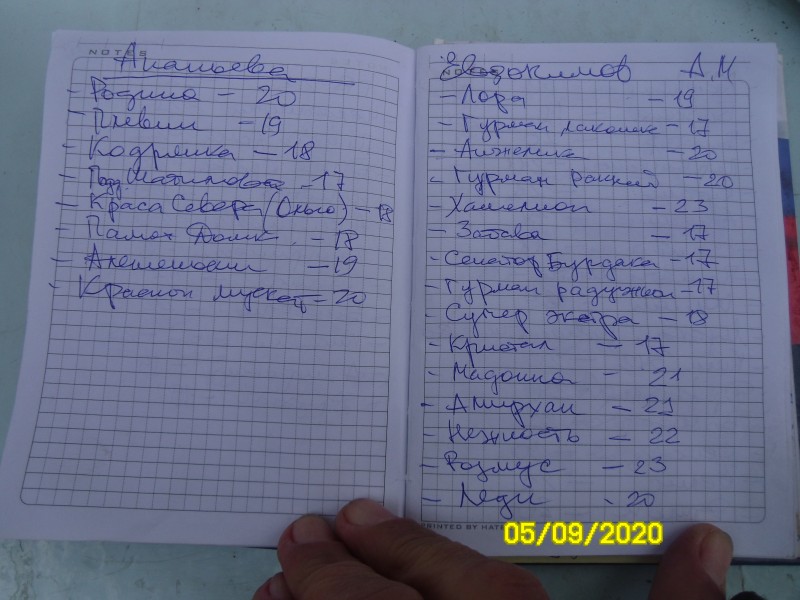 NOTES
Ананьева
- Родина - 20
- Плевен - 19
- Кодрянка - 18
- 17
- Краса Севера (Ольга) - 18
- Памят Домк. - 18
- 19
- Красной мускат - 20
Евдокимов А.М
- Лора - 19
- Гурман лакомк - 17
- Анжелика - 20
- Гурман ранний - 20
- Хамелион - 23
- Забава - 17
- Сенатор Бурдака - 17
- Гурман радужный - 17
- Супер экстра - 18
- Кристал - 17
- Мадонна - 21
- Амирхан - 21
- Нежность - 22
- Розмус - 23
- Леди - 20
PRINTED BY HATE
05/09/2020